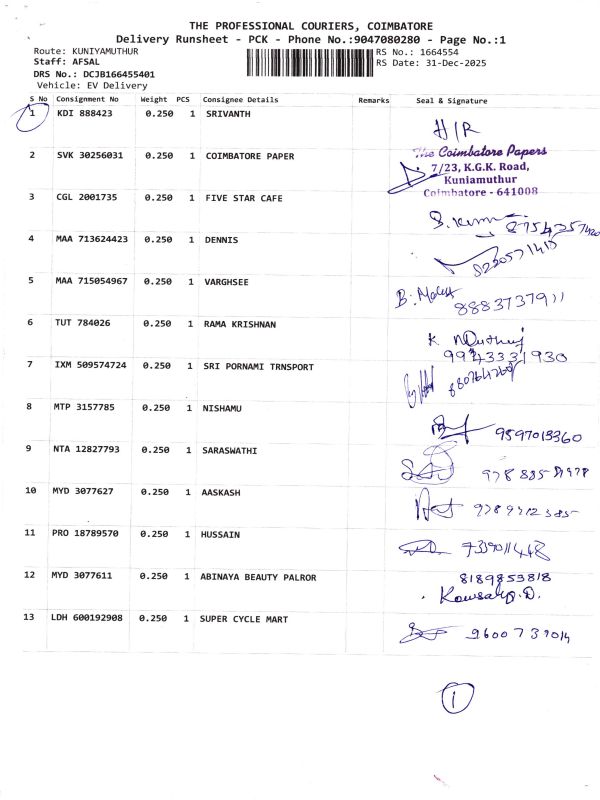 THE PROFESSIONAL COURIERS, COIMBATORE
Delivery Runsheet - PCK - Phone No.:9047080280 - Page No.:1
Route: KUNIYAMUTHUR
Staff: AFSAL
DRS No.: DCJB166455401
Vehicle: EV Delivery
RS No.: 1664554
RS Date: 31-Dec-2025
S No Consignment No Weight PCS Consignee Details Remarks Seal & Signature
1 KDI 888423 0.250 1 SRIVANTH H/R
2 SVK 30256031 0.250 1 COIMBATORE PAPER
The Coimbatore Papers
7/23, K.G.K. Road,
Kuniamuthur
Coimbatore - 641008
3 CGL 2001735 0.250 1 FIVE STAR CAFE
4 MAA 713624423 0.250 1 DENNIS
5 MAA 715054967 0.250 1 VARGHSEE
6 TUT 784026 0.250 1 RAMA KRISHNAN
7 IXM 509574724 0.250 1 SRI PORNAMI TRNSPORT
8 MTP 3157785 0.250 1 NISHAMU 9597013360
9 NTA 12827793 0.250 1 SARASWATHI
10 MYD 3077627 0.250 1 AASKASH
11 PRO 18789570 0.250 1 HUSSAIN
12 MYD 3077611 0.250 1 ABINAYA BEAUTY PALROR 8189853818
13 LDH 600192908 0.250 1 SUPER CYCLE MART
1